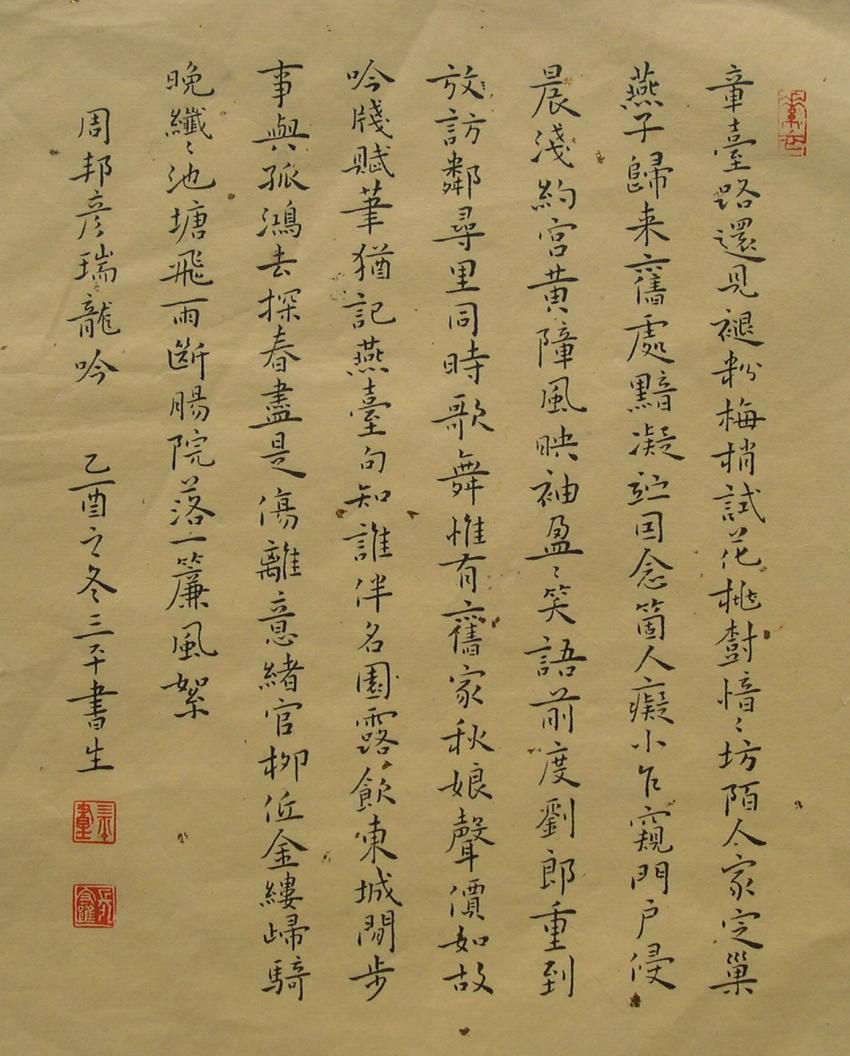 章臺路還見褪粉梅梢試花桃樹愔〻坊陌人家定巢
燕子歸来舊處黯凝竚因念箇人癡小乍窺門户侵
晨淺約宮黄障風映袖盈〻笑語前度劉郎重到
放訪鄰尋里同時歌舞惟有舊家秋娘聲價如故
吟牋賦筆猶記燕臺句知誰伴名園露飲東城閒步
事與孤鴻去探春盡是傷離意緒官柳低金縷歸騎
晚纖〻池塘飛雨斷腸院落一簾風絮
周邦彦瑞龍吟 乙酉之冬三平書生